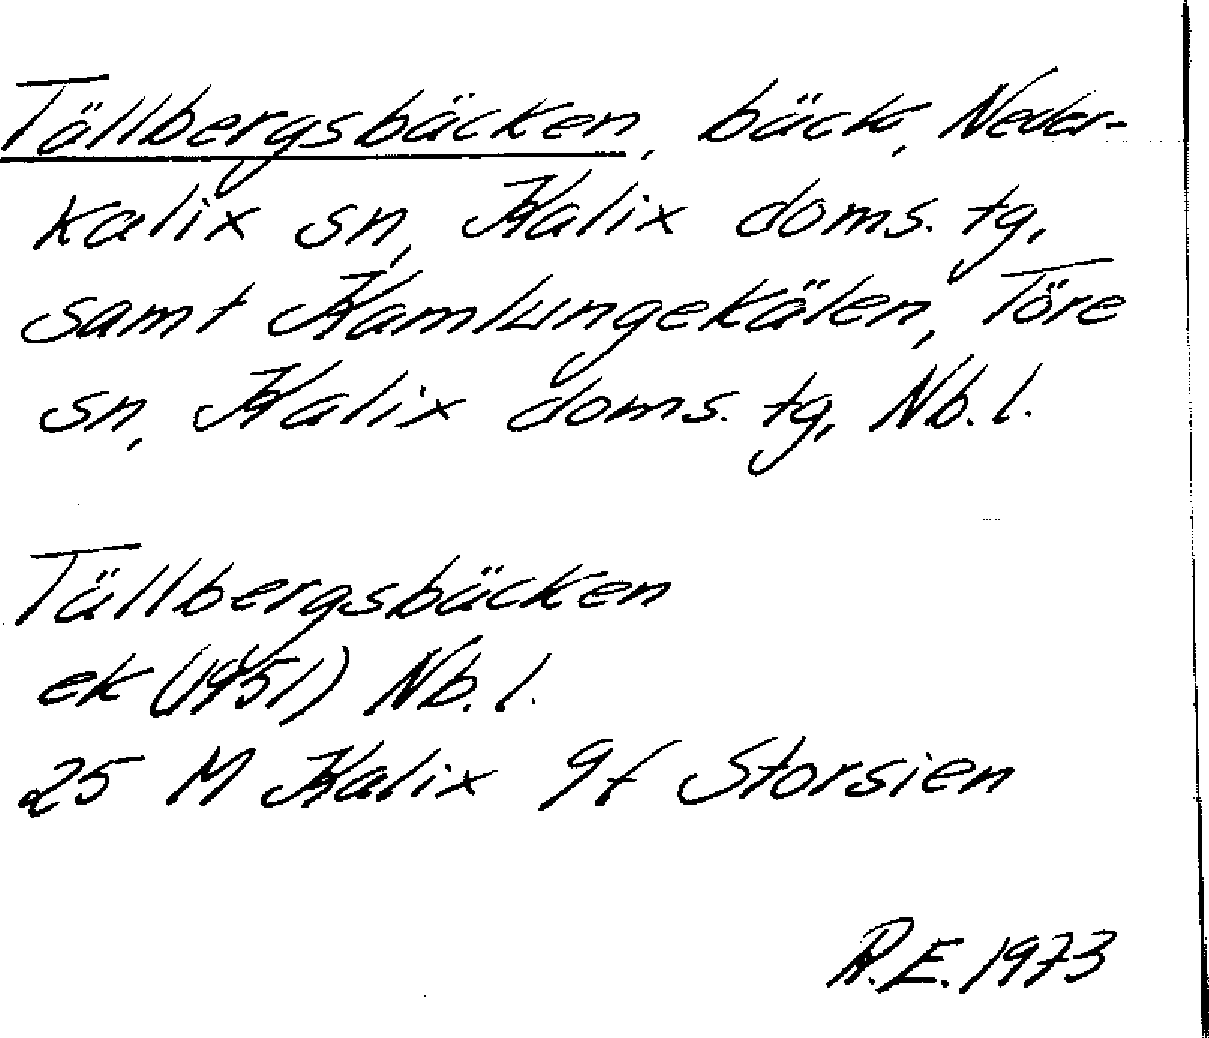 Tällbergsbäcken, bäck, Neder-
kalix sn, Kalix doms. tg,
samt Kamlungekälen, Töre
sn, Kalix doms. tg, Nb. l.
Tällbergsbäcken
ek (1951) Nb. l.
25 M Kalix 9f Storsien
R.E. 1973